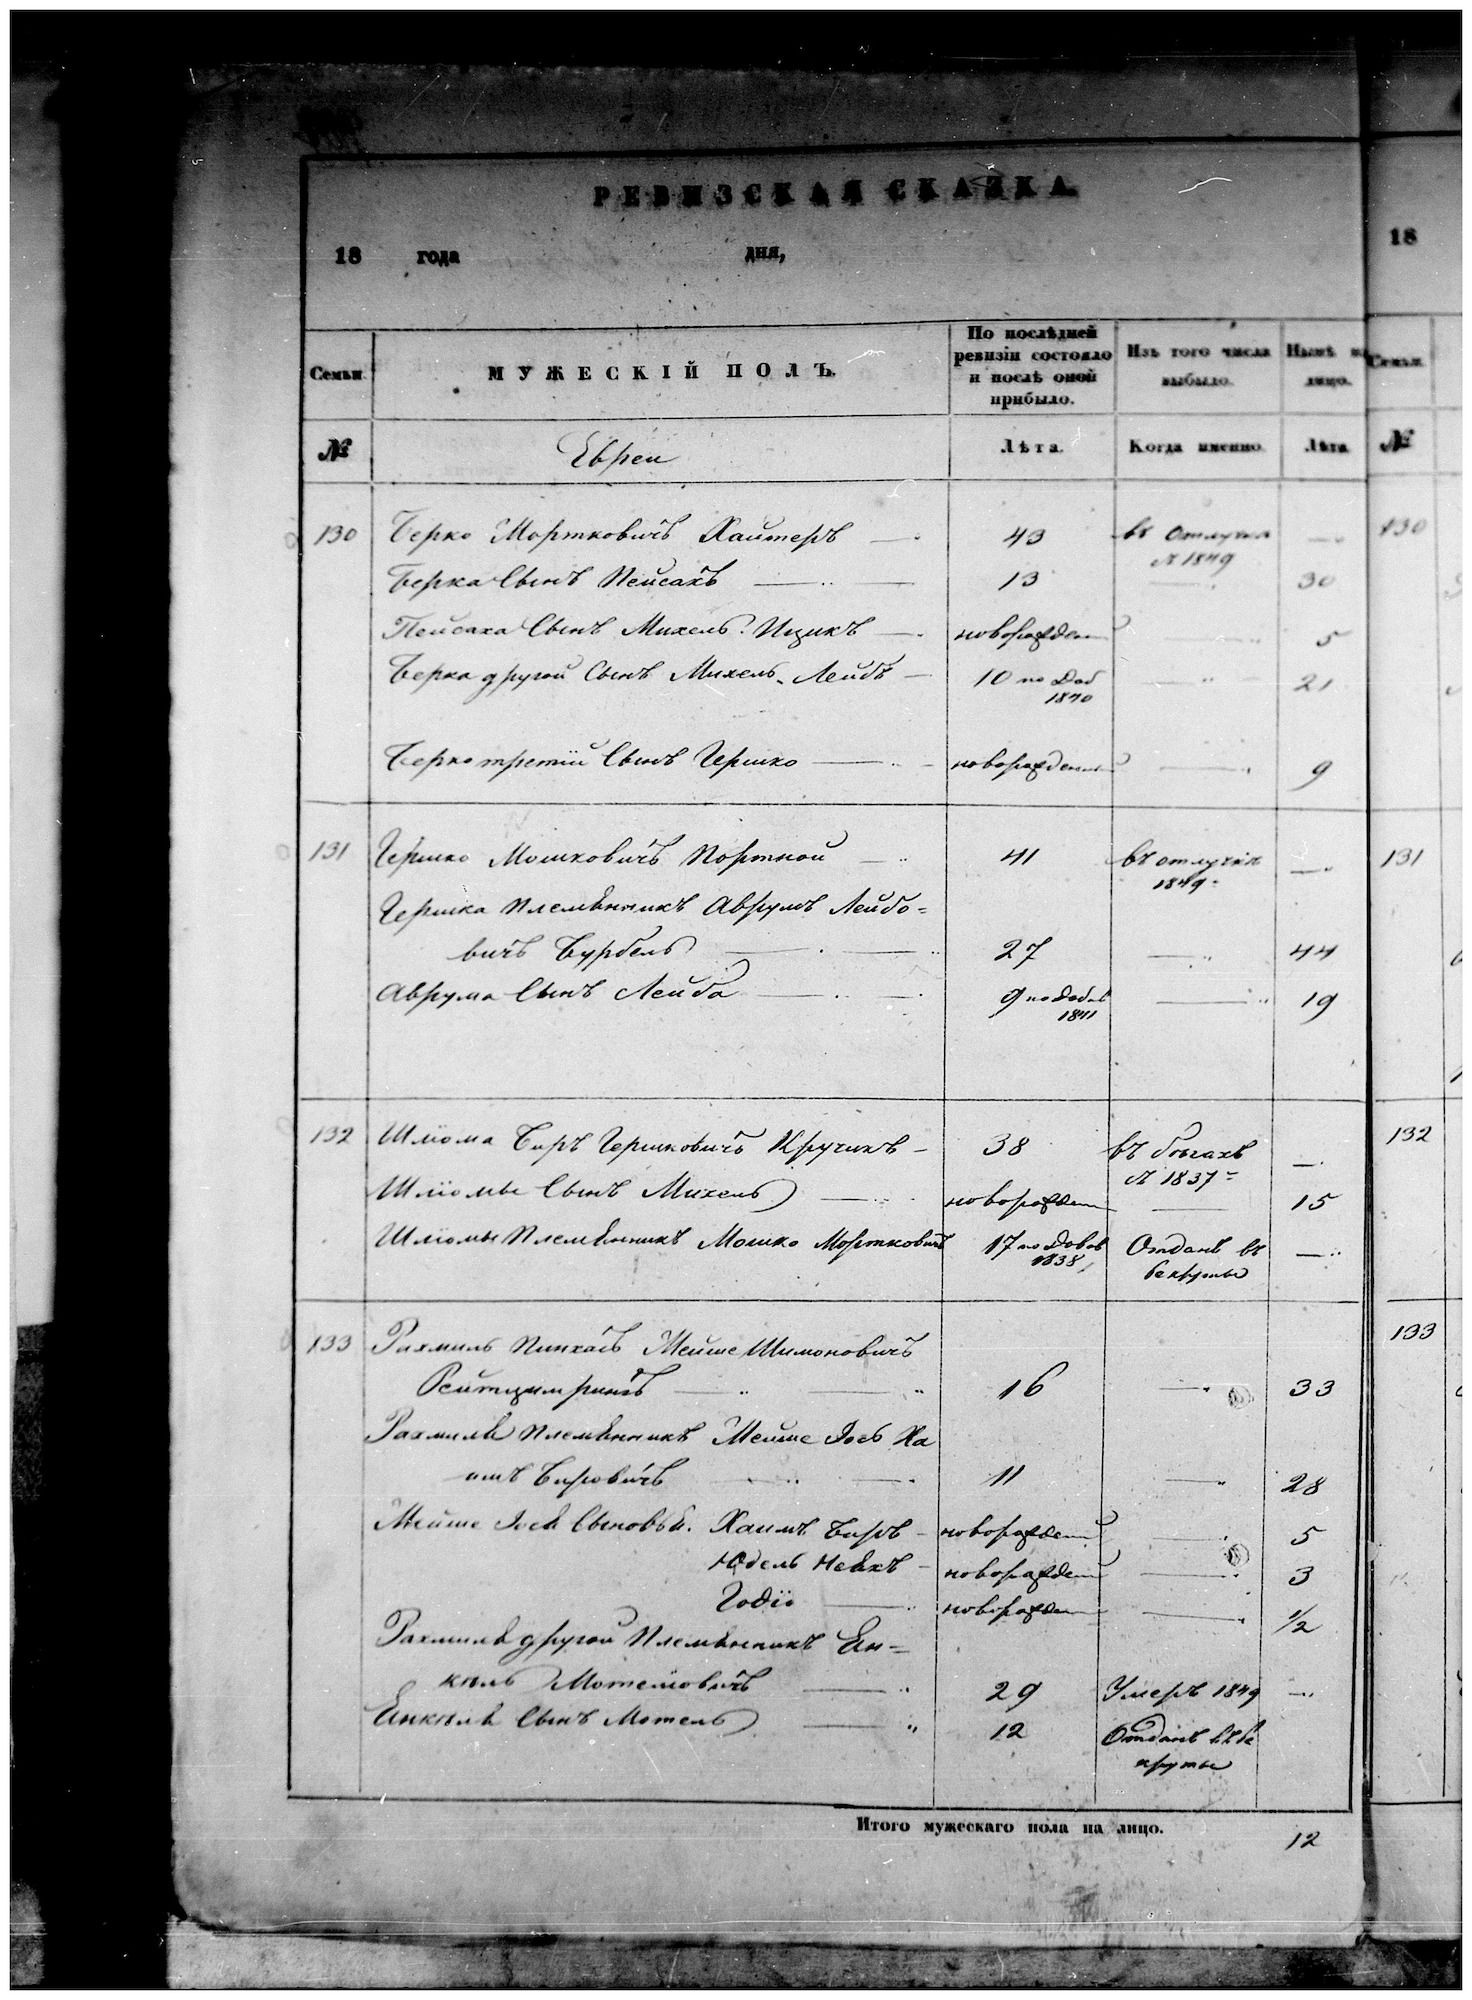 РЕВИЗСКАЯ СКАЗКА.
18 года дня,
Семьи
МУЖЕСКІЙ ПОЛЪ.
По послѣдней ревизіи состояло и послѣ оной прибыло.
Изъ того числа выбыло.
Нынѣ на лицо.
№ Евреи Лѣта. Когда именно. Лѣта
130 Берко Мортковичъ Хаитеръ 43 въ отлучкѣ
с 1849
Берка Сынъ Пейсахъ 13 30
Пейсаха Сынъ Михель Ицикъ новорожден 5
Берка другой Сынъ Михель Лейбъ 10 по доб 21
1840
Берко третій Сынъ Гершко новорожденный 9
131 Гершко Мошковичъ Портной 41 въ отлучкѣ
1849
Гершка Племѣнникъ Аврумъ Лейбо=
вичъ Бурбель 27 44
Аврума Сынъ Лейба 9 по добав 19
1841
132 Шліома Беръ Гершковичъ Кручикъ 38 въ бѣгахъ
с 1837
Шліомы Сынъ Михель новорожден 15
Шліомы Племѣнникъ Мошко Мортковичъ 17 по добав Отданъ въ
1838 рекруты
133 Рахмиль Пинхасъ Мейше Шимоновичъ
16 33
Рахмиля Племѣнникъ Мейше Іось Ха
имъ Беровичъ 11 28
Мейше Іося Сыновья. Хаимъ Беръ новорожден 5
Юдель новорожден 3
Годіо новорожден 1/2
Рахмиля другой Племѣнникъ Ян=
кель Мотеліовичъ 29 Умеръ 1849
Янкеля Сынъ Мотель 12 Отданъ въ ре
круты
Итого мужескаго пола на лицо. 12
18
Семьи
№
130
131
132
133